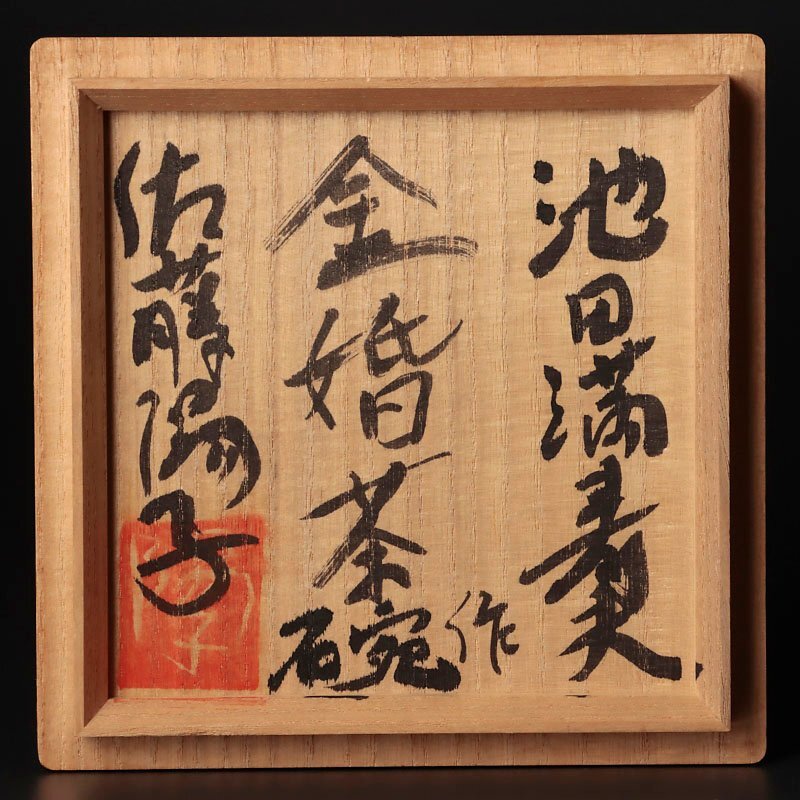 池田満寿夫
作
金婚茶碗
佐藤陽子